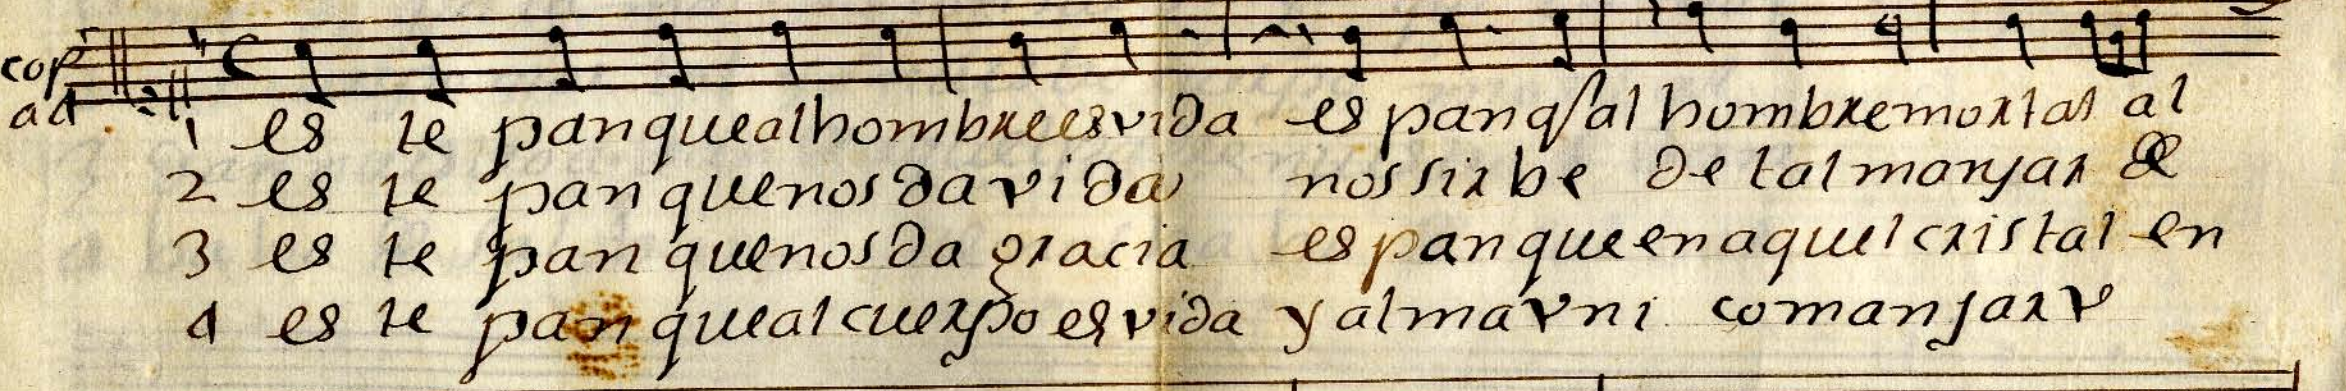 cop
a 4
1 es te pan que al hombre es vida es pan q al hombre mortal al
2 es te pan que nos da vida nos sirbe de tal manjar de
3 es te pan que nos da gracia es pan que en aquel cristal en
4 es te pan que al cuerpo es vida y al ma vni co manjar v